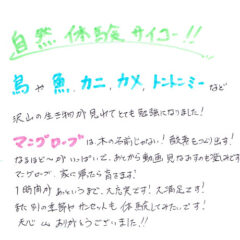 自然体験サイコー!!
鳥や魚、カニ、カメ、トントンミーなど
沢山の生き物が見れてとても勉強になりました!
マングローブは木の名前じゃない!酸素もつくり出す!
なるほど〜がいっぱいで、あとから動画見なおすのも楽しみです
マングローブ、家に帰ったら育てます!
1時間があっというまで、大充実です!大満足です!
また別の季節やサンセットも体験してみたいです!
ありがとうございました!!